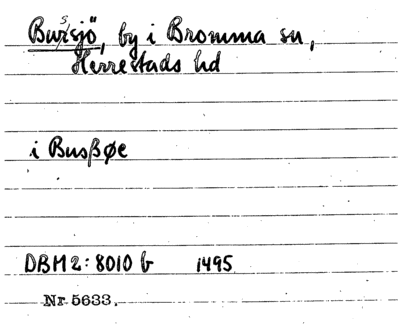 Bussjö, by i Bromma sn,
Herrestads hd
i Busßøe
DBM2:8010 b 1495
Nr 5633.